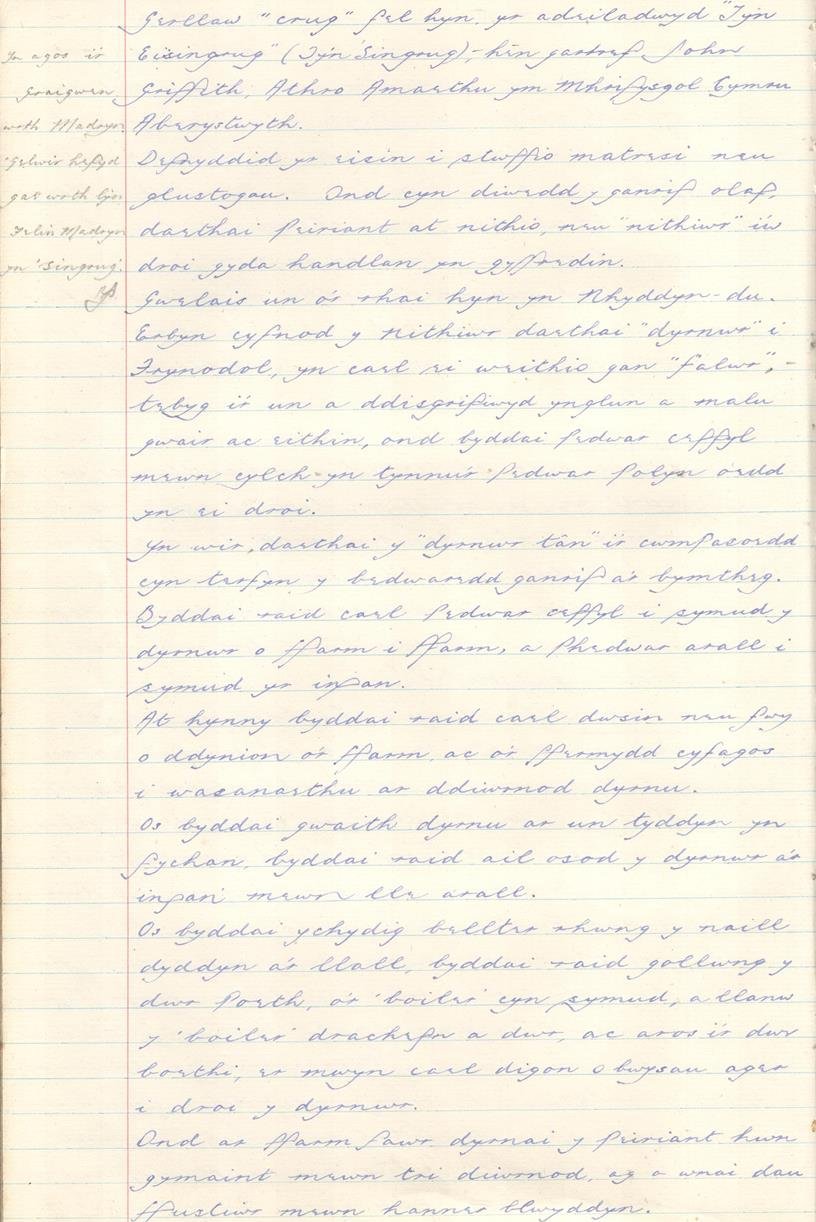 Gerllaw "crug" fel hyn, yr adeiladwyd "Tŷn
Eisingrug" (Tŷn 'Singrug),- hên gartref John
Griffith, Athro Amaethu ym Mhrifysgol Cymru
Aberystwyth.
Defnyddid yr eisin i stwffio matresi neu
glustogau. Ond cyn diwedd y ganrif olaf,
daethai peiriant at nithio, neu "nithiwr" i'w
droi gyda handlan yn gyffredin.
Gwelais un o'r rhai hyn yn Nhyddyn-du.
Erbyn cyfnod y nithiwr daethai "dyrnwr" i
Frynodol, yn cael ei weithio gan "falwr",-
tebyg i'r un a ddisgrifiwyd ynglun a malu
gwair ac eithin, ond byddai pedwar ceffyl
mewn cylch yn tynnu'r pedwar polyn oedd
yn ei droi.
Yn wir, daethai y "dyrnwr tân" i'r cwmpasoedd
cyn terfyn y bedwaredd ganrif a'r bymtheg.
Byddai raid cael pedwar ceffyl i symud y
dyrnwr o ffarm i ffarm, a phedwar arall i
symud yr injan.
At hynny byddai raid cael dwsin neu fwy
o ddynion o'r ffarm, ac o'r ffermydd cyfagos
i wasanaethu ar ddiwrnod dyrnu.
Os byddai gwaith dyrnu ar un tyddyn yn
fychan, byddai raid ail osod y dyrnwr a'r
injan mewn lle arall.
Os byddai ychydig bellter rhwng y naill
dyddyn a'r llall, byddai raid gollwng y
dwr poeth, o'r 'boiler' cyn symud, a llanw
y 'boiler' drachefn a dwr, ac aros i'r dwr
boethi, er mwyn cael digon o bwysau ager
i droi y dyrnwr.
Ond ar ffarm fawr dyrnai y peiriant hwn
gymaint mewn tri diwrnod, ag a wnai dau
ffustiwr mewn hanner blwyddyn.
Yn agos i'r
Graigwen
wrth Madryn
Gelwir hefyd
gae wrth lyn
Felin Madryn
yn 'Singrug'.